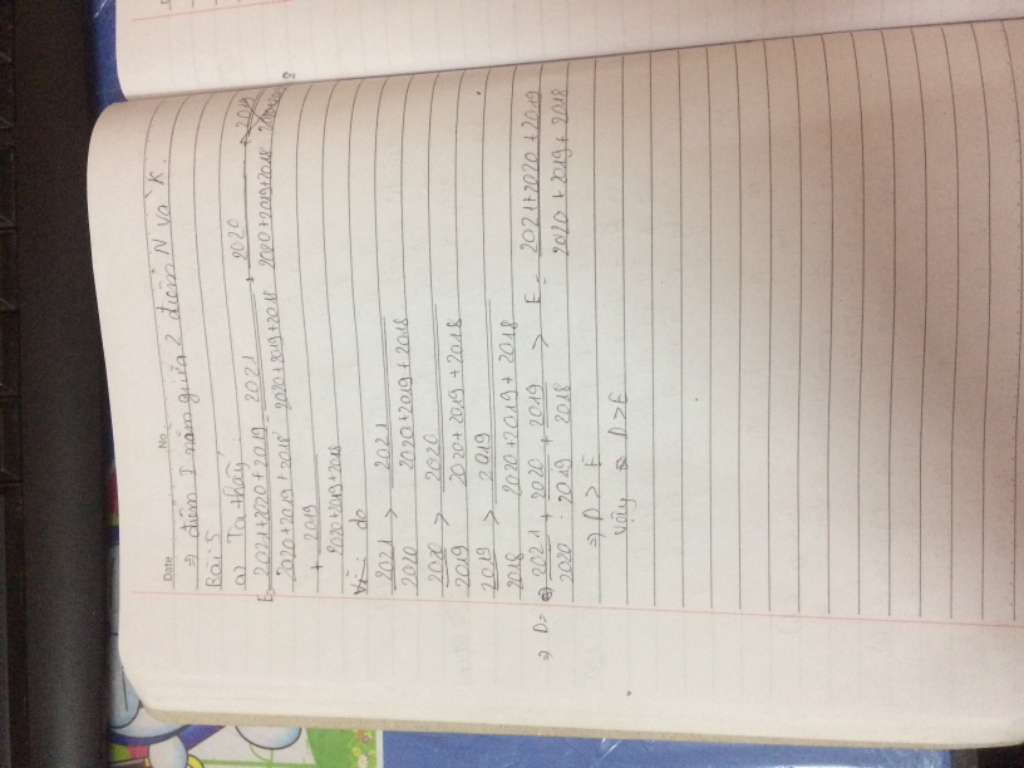 Date No
⇒ điểm I nằm giữa 2 điểm N và K.
Bài 5
a) Ta thấy
E = (2021+2020+2019)/(2020+2019+2018) = 2021/(2020+2019+2018) + 2020/(2020+2019+2018)
+ 2019/(2020+2019+2018)
Vì: do
2021/2020 > 2021/(2020+2019+2018)
2020/2019 > 2020/(2020+2019+2018)
2019/2018 > 2019/(2020+2019+2018)
⇒ D = 2021/2020 + 2020/2019 + 2019/2018 > E = (2021+2020+2019)/(2020+2019+2018)
⇒ D > E
Vậy D > E